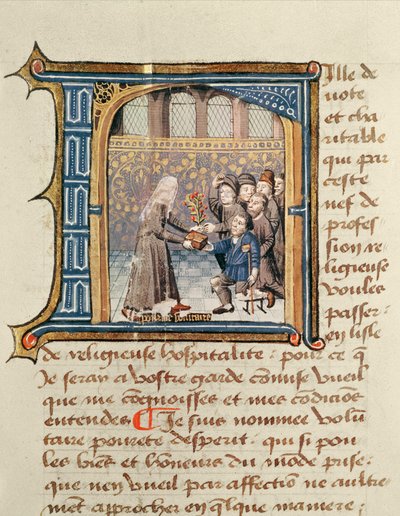 pourete volutaire
Ille de
uote
et cha
ritable
qui par
ceste
nef de
profes
sion re
ligieuse
voules
passer
en lisle
de religieuse hospitalite : pour ce q̃
Je seray a vostre garde cōmise vueil
que me cognoisses et mes cōdiciōs
entendes ¶ Je suis nommee volū
taire pourete desperit : qui si pou
les biēs et hōneurs du mōde prise :
que nen vueil par affectiō ne aultre
mēt approcher en q̄lque maniere :